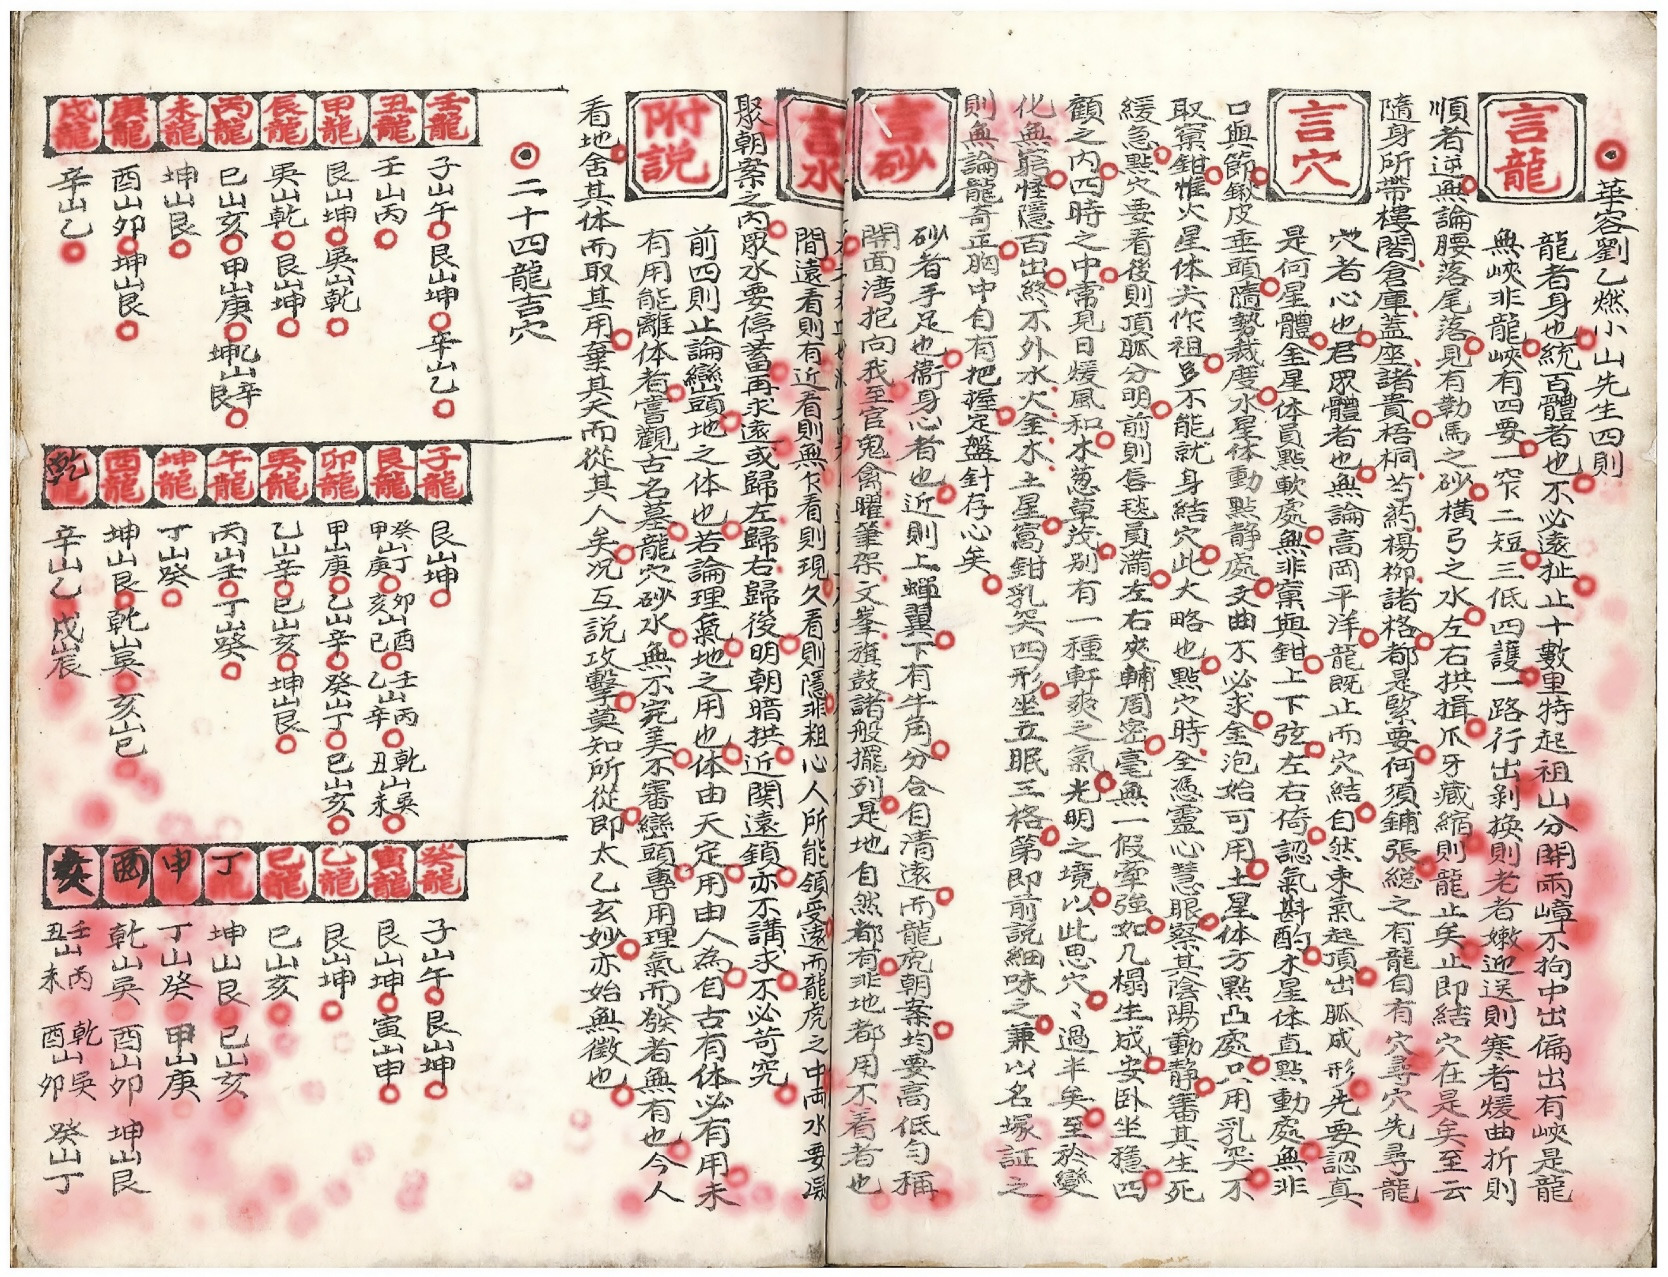 華容劉乙燃小山先生四則
言龍
龍者身也統百體者也不必遠扯止十數里特起祖山分開兩嶂不拘中出偏出有峽是龍
無峽非龍峽有四要一窄二短三低四護一路行出剝換則老者嫩迎送則寒者煖曲折則
順者逆無論腰落尾落見有勒馬之砂橫弓之水左右拱揖爪牙藏縮則龍止矣止即結穴在是矣至云
隨身所帶樓閣倉庫蓋座諸貴梧桐芍葯楊柳諸格都是緊要何須鋪張總之有龍自有穴尋穴先尋龍
言穴
穴者心也君眾體者也無論高岡平洋龍既止而穴結自然束氣起頂出脈成形先要認真
是何星體金星体員點軟處無非窩與鉗上下弦左右倚認氣斟酌木星体直點動處無非
口與節鍬皮垂頭隨勢裁度水星体動點静處文曲不必求金泡始可用土星体方點凸處只用乳突不
取窩鉗惟火星体尖作祖多不能就身結穴此大略也點穴時全憑靈心慧眼察其陰陽動静審其生死
緩急點穴要看後則頂脈分明前則唇毯員滿左右夾輔周密毫無一假牽強如几榻生成安卧坐穩四
顧之内四時之中常見日煖風和木葱草茂别有一種軒爽之氣光明之境以此思穴〻過半矣至於變
化無窮怪隱百出終不外水火金木土星窩鉗乳突四形坐立眠三格第即前説細味之兼以名塚証之
則無論龍奇正胸中自有把握定盤針存心矣
言砂
砂者手足也衞身心者也近則上蟬翼下有牛角分合自清遠而龍虎朝案均要高低匀稱
開面湾抱向我至官鬼禽曜筆架文峯旗鼓諸般擺列是地自然都有非地都用不着者也
言水
間遠看則有近看則無乍看則現久看則隱非粗心人所能領受遠而龍虎之中両水要凝
聚朝案之内眾水要停蓄再求遠或歸左歸右歸後明朝暗拱近関遠鎖亦不講求不必苛究
附説
前四則止論巒頭地之体也若論理氣地之用也体由天定用由人為自古有体必有用未
有用能離体者嘗觀古名墓龍穴砂水無不完美不審巒頭專用理氣而發者無有也今人
看地舍其体而取其用棄其天而從其人矣况互説攻擊莫知所從即太乙玄妙亦始無徵也
二十四龍吉穴
壬龍
子山午 艮山坤 辛山乙
丑龍
壬山丙
甲龍
艮山坤 巽山乾
辰龍
巽山乾 艮山坤
丙龍
巳山亥 甲山庚 乙山辛 坤山艮
未龍
坤山艮
庚龍
酉山卯 坤山艮
戌龍
辛山乙
子龍
艮山坤
艮龍
癸山丁 卯山酉 壬山丙 乾山巽
甲山庚 亥山巳 乙山辛 丑山未
卯龍
甲山庚 乙山辛 癸山丁 巳山亥
巽龍
乙山辛 巳山亥 坤山艮
午龍
丙山壬 丁山癸
坤龍
丁山癸
酉龍
坤山艮 乾山巽 亥山巳
乾龍
辛山乙 戌山辰
癸龍
子山午 艮山坤
寅龍
艮山坤 寅山申
乙龍
艮山坤
巳龍
巳山亥
丁
坤山艮 巳山亥
申
丁山癸 甲山庚
酉
乾山巽 酉山卯 坤山艮
亥
壬山丙 乾山巽 癸山丁
丑山未 酉山卯